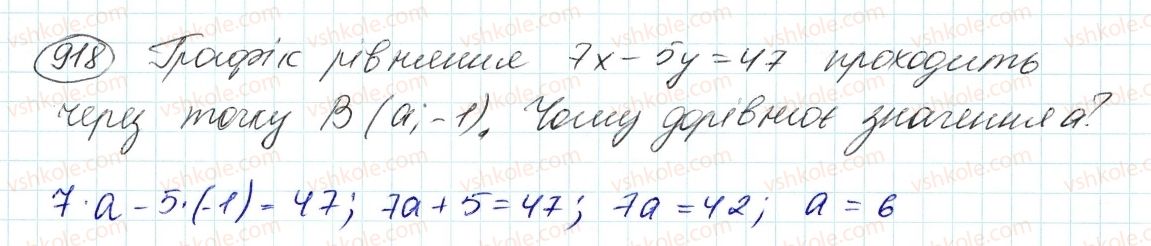 918 Графік рівняння 7x - 5y = 47 проходить
через точку B (a; -1). Чому дорівнює значення a?
7·a - 5·(-1) = 47; 7a + 5 = 47; 7a = 42; a = 6